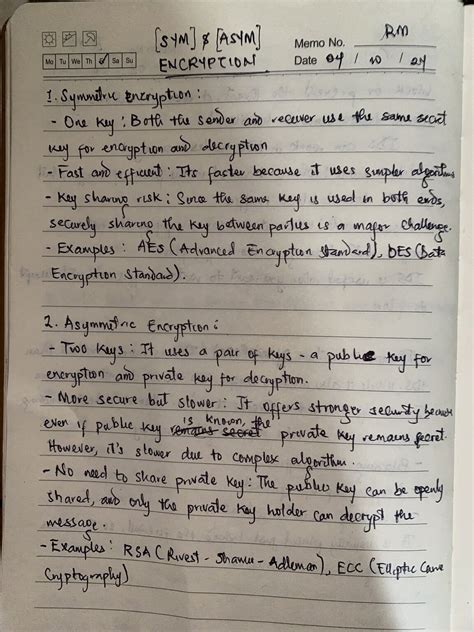 [SYM] & [ASYM]
ENCRYPTION
Memo No. RM
Mo Tu We Th Fr Sa Su
Date 04 / 10 / 24
1. Symmetric Encryption :
- One Key : Both the sender and receiver use the same secret
key for encryption and decryption
- Fast and efficient : Its faster because it uses simpler algorithms
- Key sharing risk ; Since the same key is used in both ends,
securely sharing the key between parties is a major challenge.
- Examples : AES (Advanced Encryption Standard), DES (Data
Encryption Standard).
2. Asymmetric Encryption :
- Two Keys : It uses a pair of keys - a public key for
encryption and private key for decryption.
- More secure but slower : It offers stronger security because
even if public key is known, the private key remains secret.
However, it's slower due to complex algorithm.
- No need to share private key : The public key can be openly
shared, and only the private key holder can decrypt the
message.
- Examples : RSA (Rivest - Shamir - Adleman), ECC (Elliptic Curve
Cryptography)